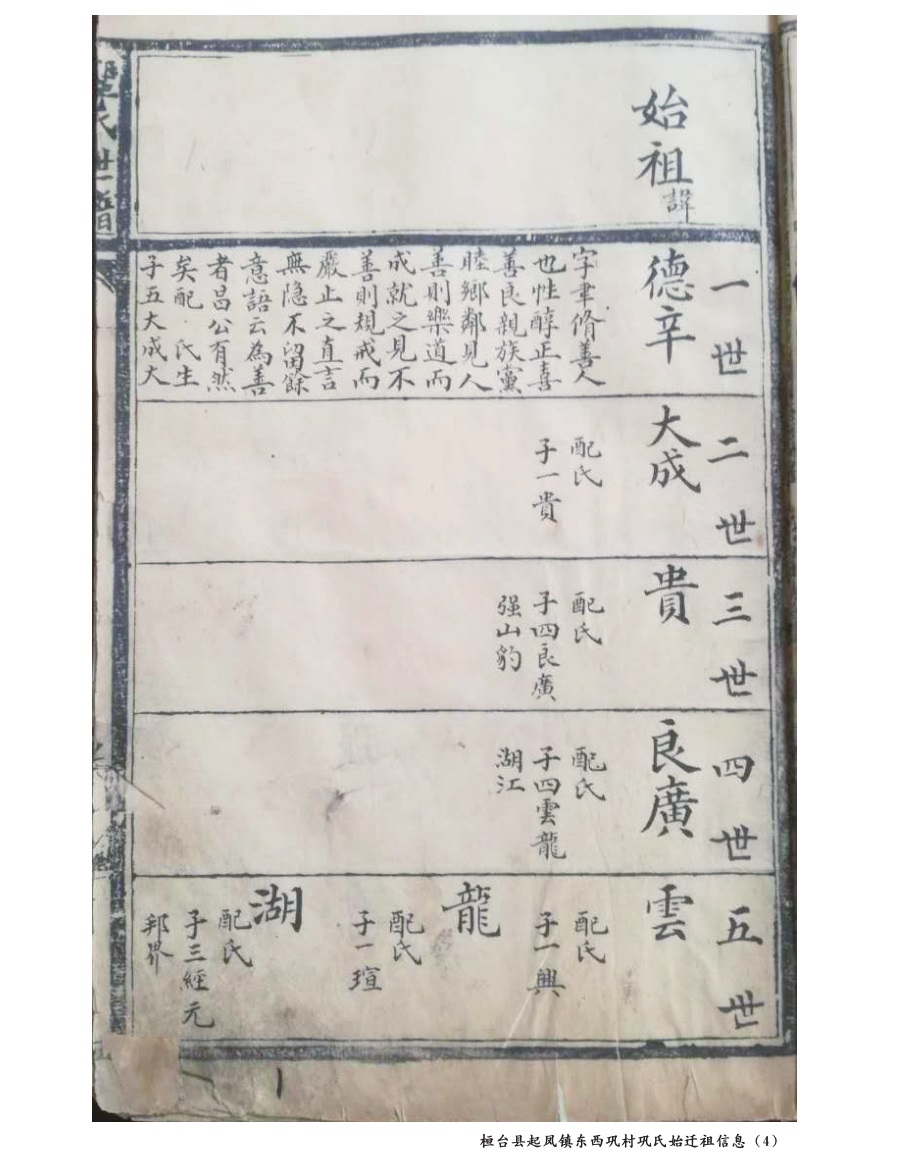 鞏氏世譜
始祖諱
一世
德辛
字聿脩善人
也性醇正喜
善良親族黨
睦鄉鄰見人
善則樂道而
成就之見不
善則規戒而
嚴止之直言
無隐不留餘
意語云為善
者昌公有然
矣配 氏生
子五大成大
二世
大成
配氏
子一貴
三世
貴
配氏
子四良廣
强山豹
四世
良廣
配氏
子四雲龍
湖江
五世
雲
配氏
子一興
龍
配氏
子一瑄
湖
配氏
子三經元
邦畧
1
桓台县起凤镇东西巩村巩氏始迁祖信息（4）